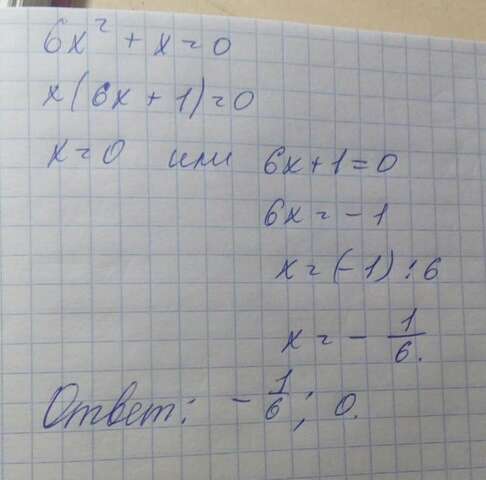 6x² + x = 0
x(6x + 1) = 0
x = 0 или 6x + 1 = 0
6x = -1
x = (-1) : 6
x = - 1/6.
Ответ: - 1/6; 0.